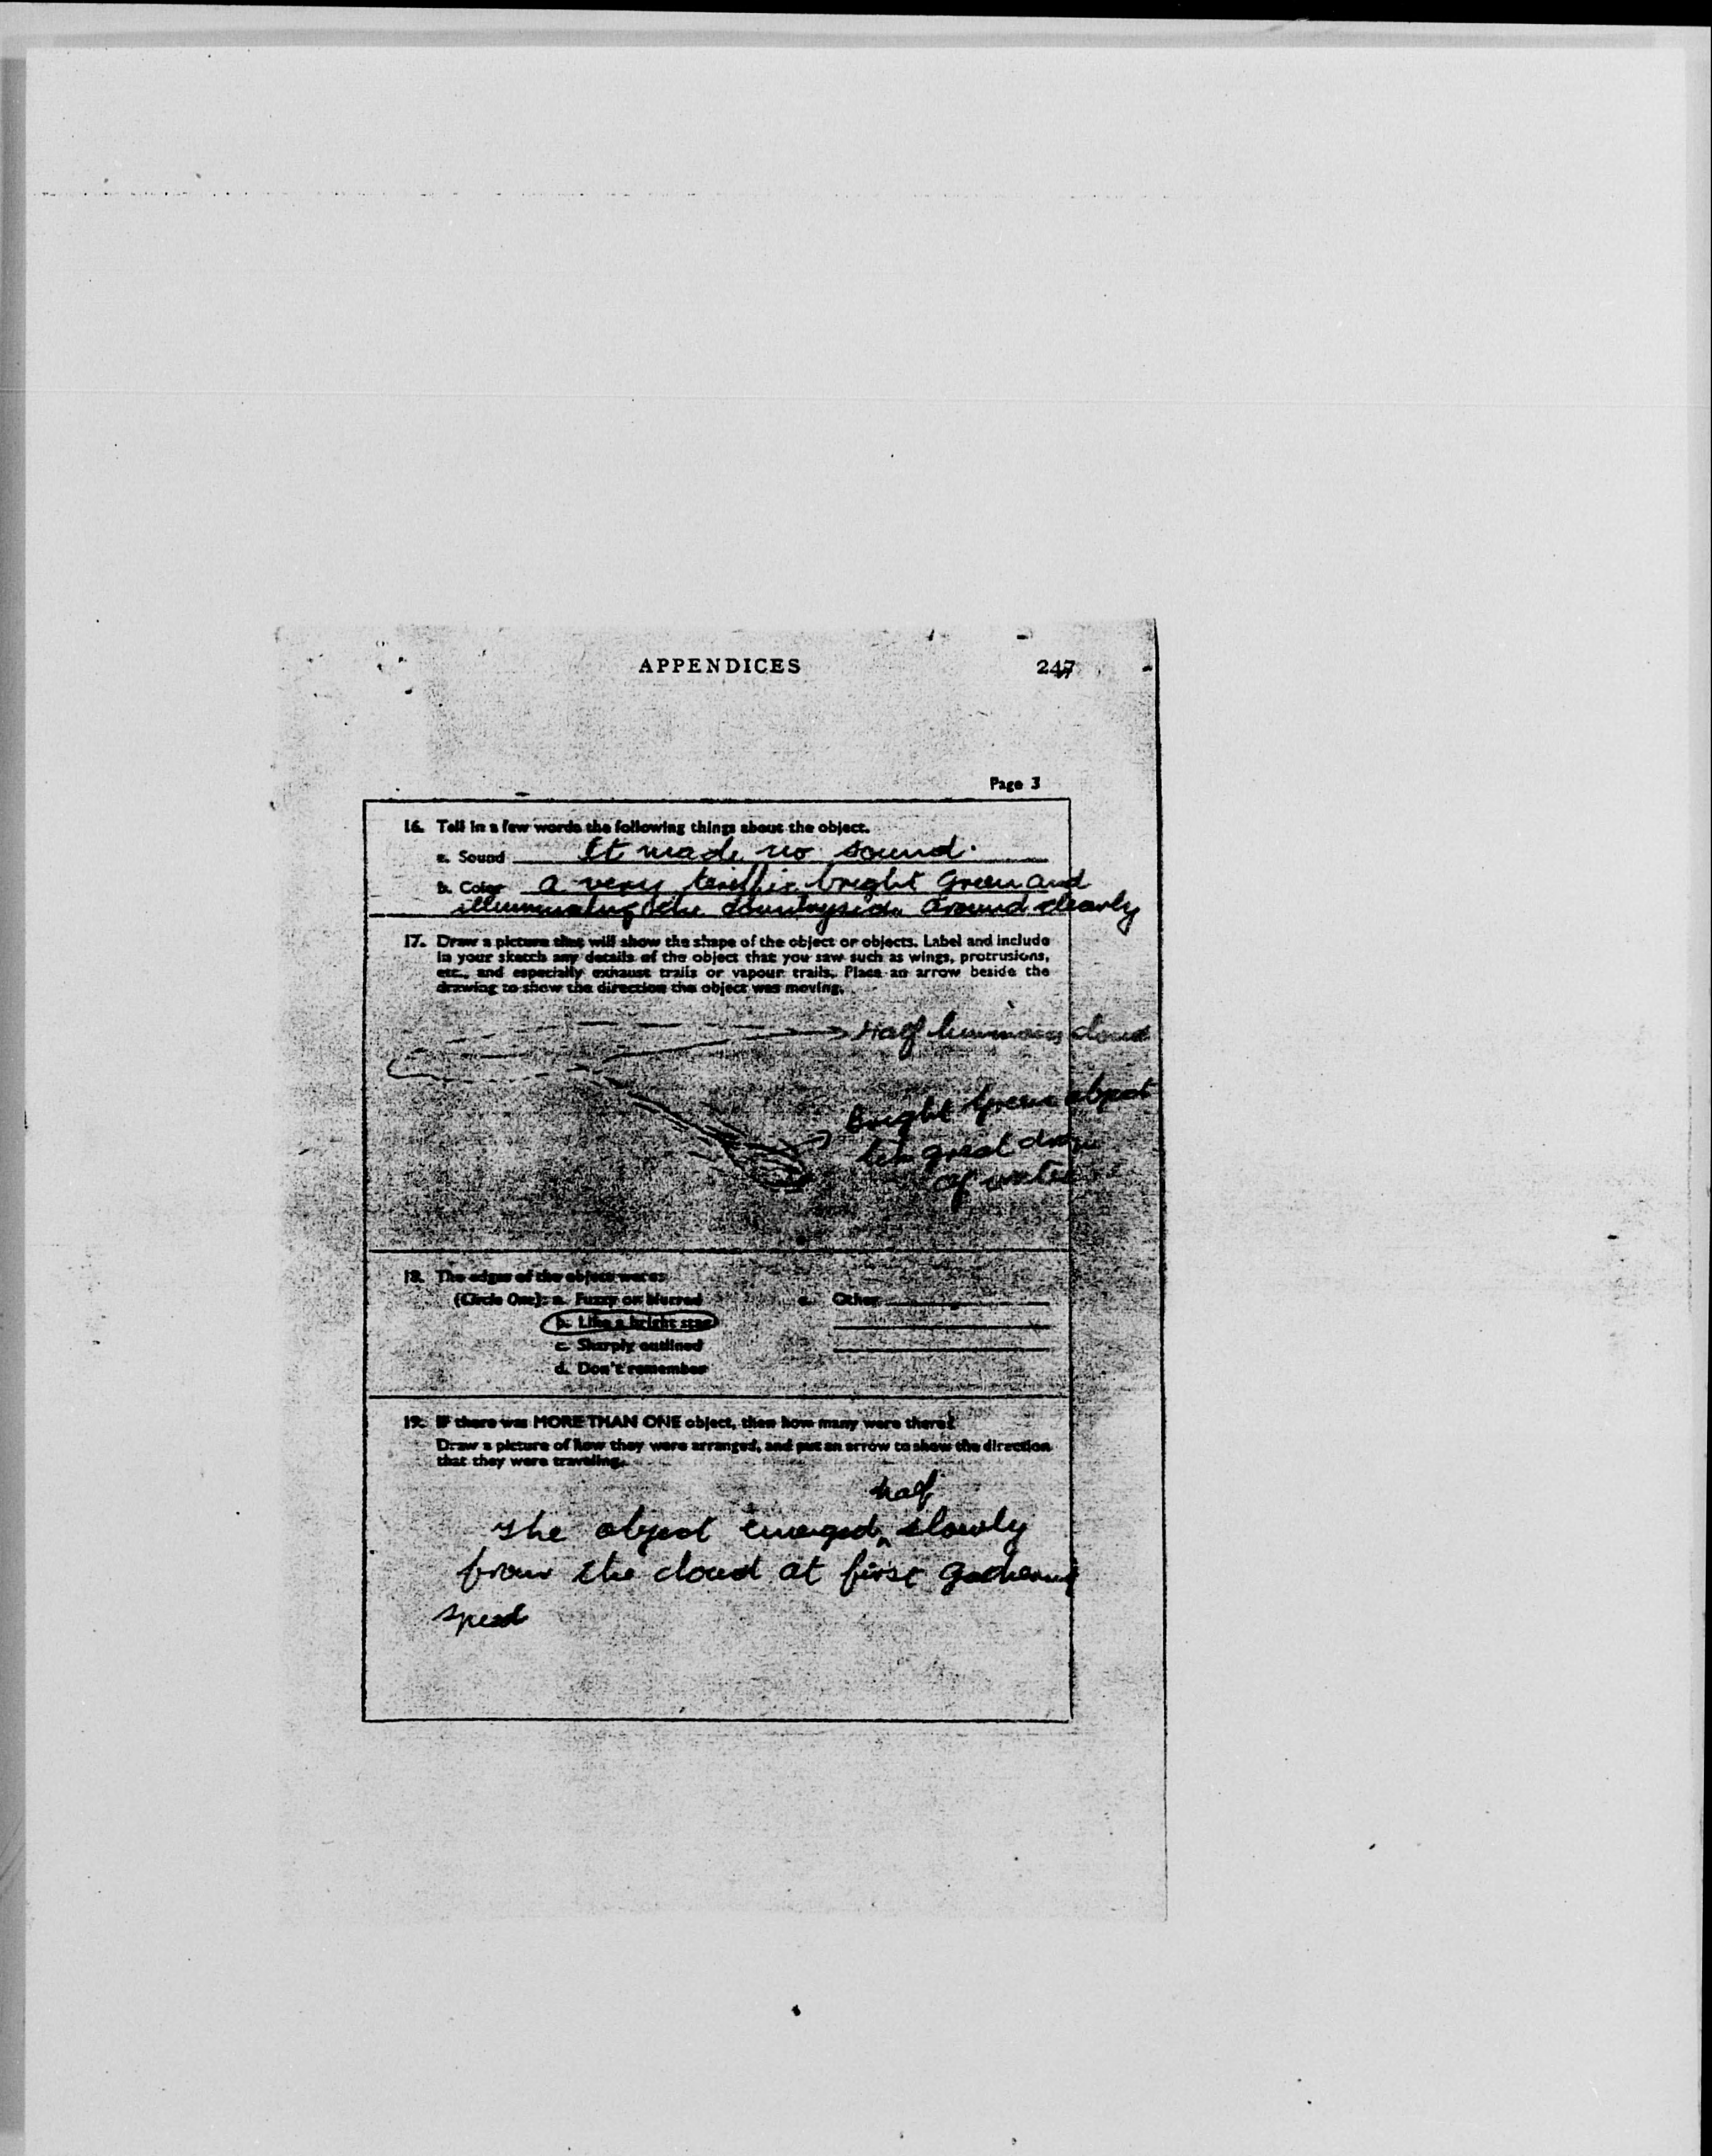 APPENDICES 247
Page 3
16. Tell in a few words the following things about the object.
a. Sound It made no sound.
b. Color a very terrific bright Green and
illuminating the countryside around clearly
17. Draw a picture that will show the shape of the object or objects. Label and include
in your sketch any details of the object that you saw such as wings, protrusions,
etc., and especially exhaust trails or vapour trails. Place an arrow beside the
drawing to show the direction the object was moving.
Half luminous cloud
Bright Green object
great drop
of water
18. The edges of the object were:
(Circle One): a. Fuzzy or blurred e. Other
b. Like a bright star
c. Sharply outlined
d. Don't remember
19. IF there was MORE THAN ONE object, then how many were there?
Draw a picture of how they were arranged, and put an arrow to show the direction
that they were traveling.
half
The object emerged ^ slowly
from the cloud at first gathering
speed